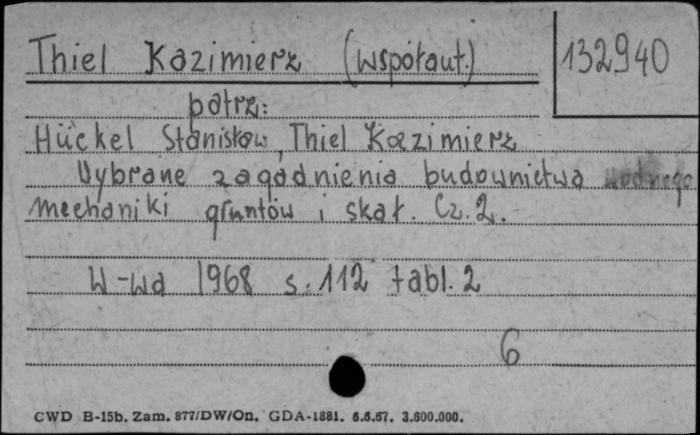 Thiel Kazimierz (współaut.) 132940
patrz:
Hückel Stanisław, Thiel Kazimierz
Wybrane zagadnienia budownictwa wodnego
mechaniki gruntów i skał. Cz. 2.
W-wa 1968 s. 112 tabl. 2
6
CWD B-15b. Zam. 877/DW/On. GDA-1881. 6.6.67. 3.600.000.